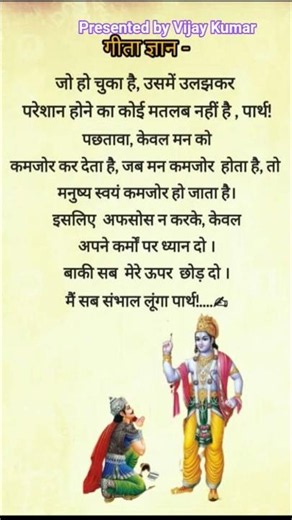 Presented by Vijay Kumar
गीता ज्ञान -
जो हो चुका है, उसमें उलझकर
परेशान होने का कोई मतलब नहीं है , पार्थ!
पछतावा, केवल मन को
कमजोर कर देता है, जब मन कमजोर होता है, तो
मनुष्य स्वयं कमजोर हो जाता है।
इसलिए अफसोस न करके, केवल
अपने कर्मों पर ध्यान दो ।
बाकी सब मेरे ऊपर छोड़ दो ।
मैं सब संभाल लूंगा पार्थ!....✍